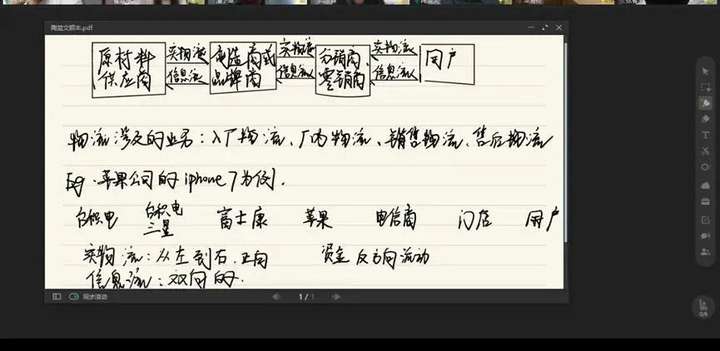 原材料 实物流 制造商或 实物流 分销商、 实物流 用户
供应商 信息流 品牌商 信息流 零销商 信息流
物流涉及的业务：入厂物流、厂内物流、销售物流、售后物流
Eg. 苹果公司的 iphone7为例.
台积电 台积电 富士康 苹果 电信商 门店 用户
三星
实物流：从左到右.正向 资金反方向流动
信息流：双向的.
1/1